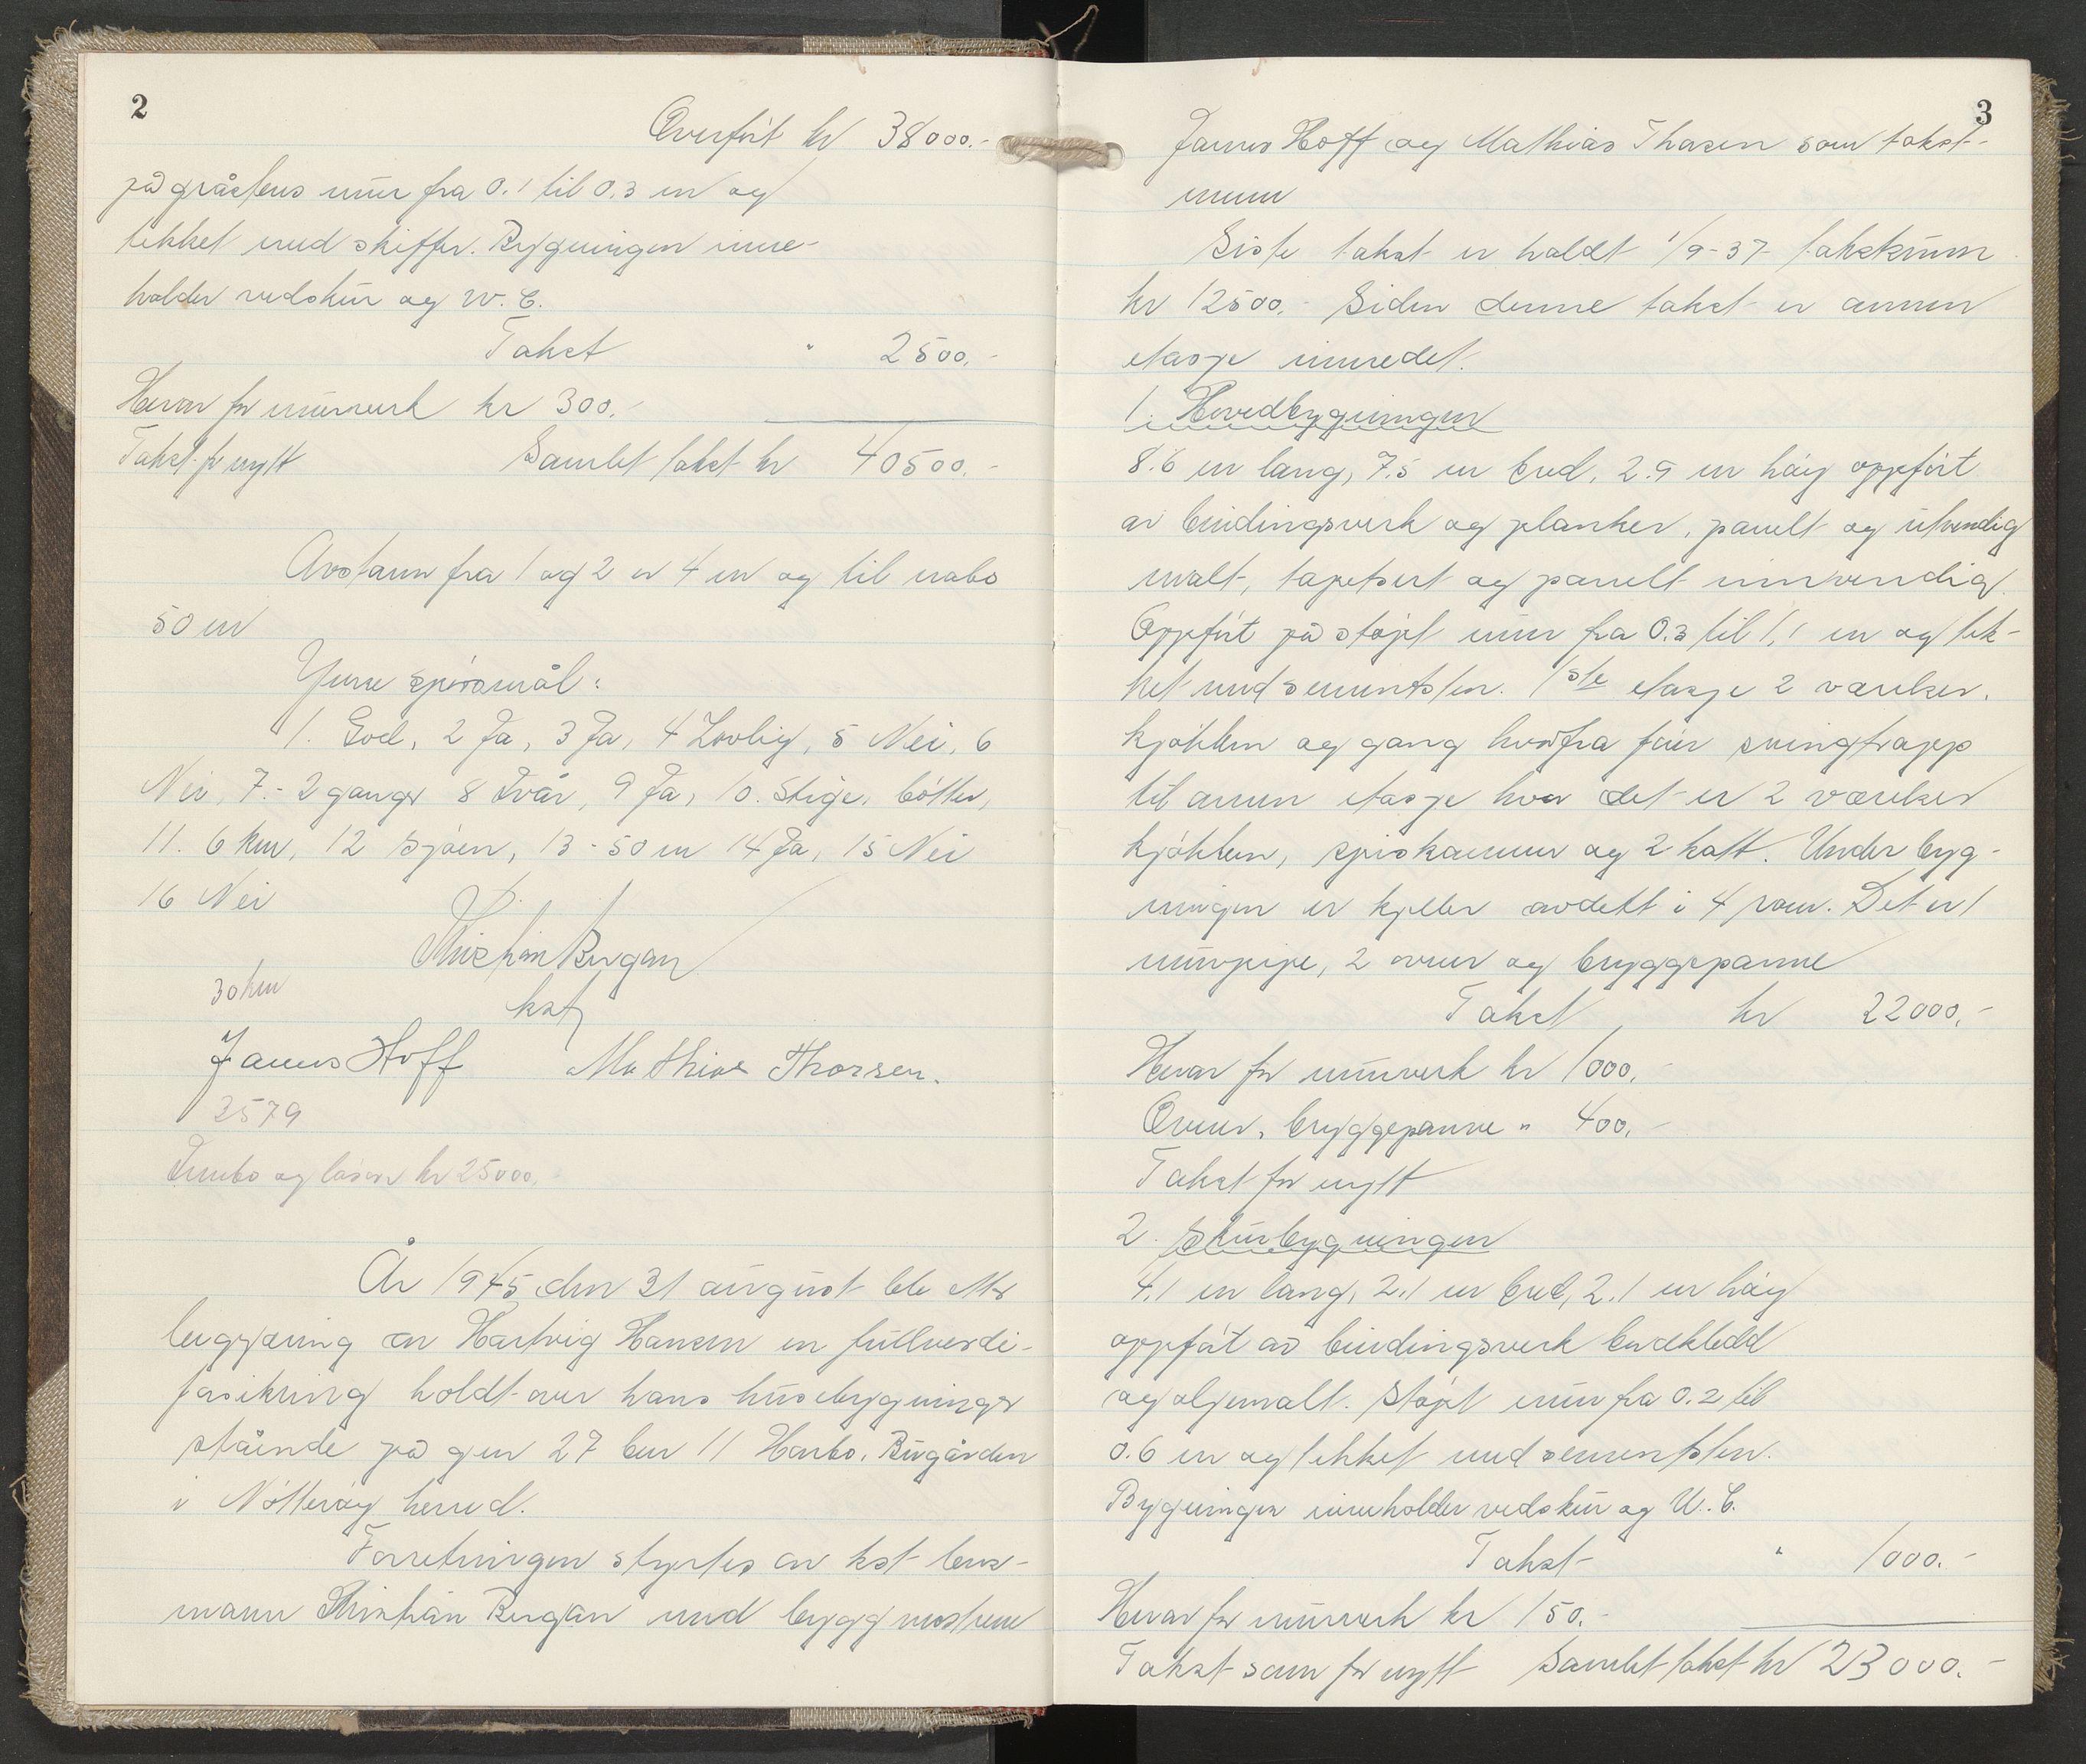 2
Overført kr 38000.-
på gråstens mur fra 0.1 til 0.3 m og
tekket med skiffer. Bygningen inne-
holder vedskur og W.C.
Takst " 2500.-
Herav for murverk kr 300.-
Takst for nytt Samlet takst kr 40500.-
Avstann fra 1 og 2 er 4 m og til nabo
50 m
Ymse spörsmål:
1. God, 2 Ja, 3 Ja, 4 Lovlig, 5 Nei, 6
Nei, 7.- 2 ganger 8 Svar, 9 Ja, 10. Stige, bötter,
11. 6 km, 12 Sjöen, 13 - 50 m 14 Ja, 15 Nei
16 Nei
Kristian Bergan
30 km
kst
James Hoff Mathias Thorsen.
3579
Innbo og lösöre kr 25000.
År 1945 den 31 august ble etter
begjæring av Hartvig Hansen en fullverdi-
forsikring holdt over hans husebygninger
stående på gnr 27 bnr 11 Borgården
i Nötteröy herred.
Forretningen styrtes av kst lens-
mann Kristian Bergan med byggmestrene
3
James Hoff og Mathias Thorsen som takst-
menn
Siste takst er holdt 1/9-37 takstsum
kr 12500.- Siden denne takst er annen
etasje innredet.
1. Hovedbygningen
8.6 m lang, 7.5 m bred, 2.9 m höy oppfört
av bindingsverk og planker, panelt og utvendig
malt, tapetsert og panelt innvendig.
Oppfört på stöpt mur fra 0.3 til 1.1 m og tek-
ket med sementsten. 1ste etasje 2 værelser,
kjökken og gang hvorfra förer svingtrapp
til annen etasje hvor det er 2 værelser
kjökken, spiskammer og 2 kott. Under byg-
ningen er kjeller avdelt i 4 rom. Det er 1
murpipe, 2 ovner og bryggepanne
Takst kr 22000,-
Herav for murverk kr 1000.-
Ovner, bryggepanne " 400.-
Takst for nytt
2. Skurbygningen
4.1 m lang, 2.1 m bred, 2.1 m höy
oppfört av bindingsverk bordkledd
og oljemalt. Stöpt mur fra 0.2 til
0.6 m og tekket med sementsten.
Bygningen inneholder vedskur og W.C.
Takst " 1000.-
Herav for murverk kr 150.-
Takst som for nytt Samlet takst kr 23000.-